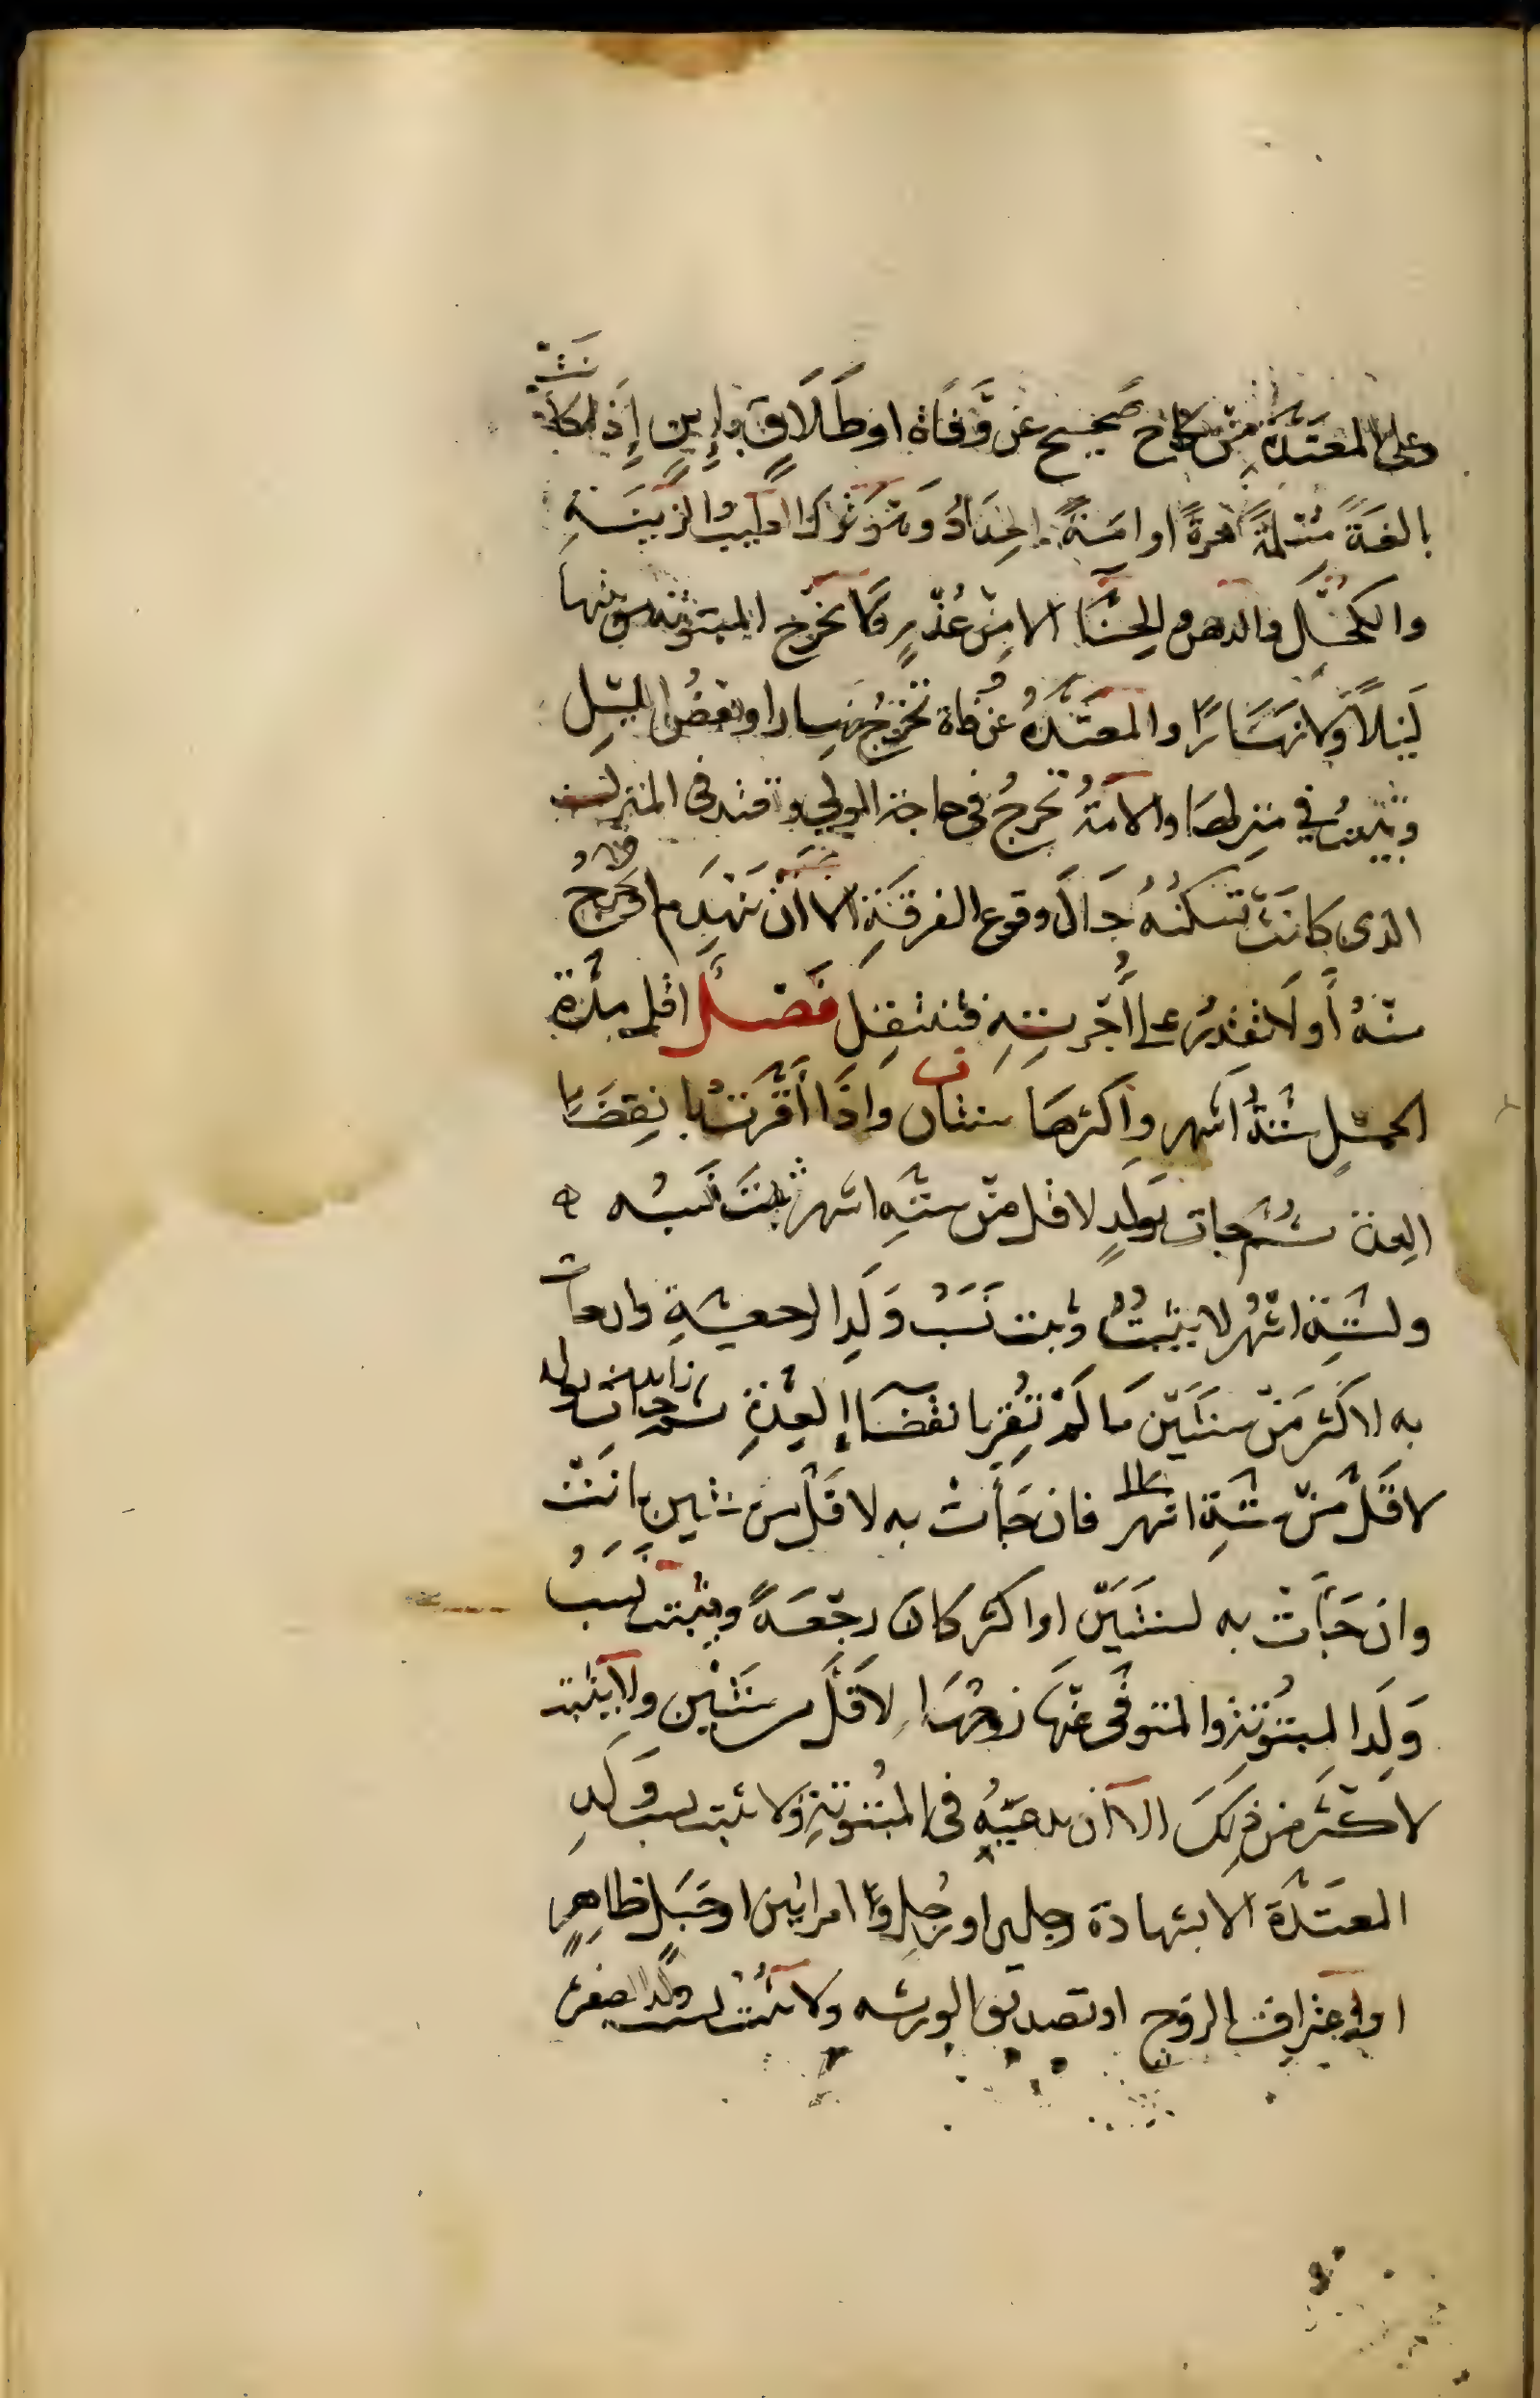 وعلى المعتدة من نكاح صحيح عن وفاة او طلاق باين إذا كانت
بالغة مسلمة حرة او امة الحداد وهو ترك الطيب والزينة
والكحل والدهن والحنا الا من عذر ولا تخرج المبتوتة من بيتها
ليلا ولا نهارا والمعتدة عن وفاة تخرج نهارا وبعض الليل
وتبيت في منزلها والامة تخرج في حاجة المولى وتعتد في المنزل
الذي كانت تسكنه حال وقوع الفرقة الا ان ينهدم او تخرج
منه أو لا تقدر على أجرته فتنتقل فصل اقل مدة
الحمل ستة اشهر واكثرها سنتان واذا أقرت بانقضا
العدة ثم جات بولد لاقل من ستة اشهر ثبت نسبه
ولستة اشهر لا يثبت ويثبت نسب ولد الرجعية وان جات
به لاكثر من سنتين ما لم تقر بانقضا العدة
لاقل من ستة اشهر فان جأت به لاقل من سنتين بانت
وان جأت به لسنتين او اكثر كان رجعة ويثبت نسب
ولد المبتوتة والمتوفى عنها زوجها لاقل من سنتين ولا يثبت
لاكثر من ذلك الا ان يدعيه في المبتوتة ولا يثبت نسب ولد
المعتدة الا بشهادة رجلين او رجل وامراتين او حبل ظاهر
او اعتراف الزوج او تصديق الورثه ولا يثبت نسب ولد